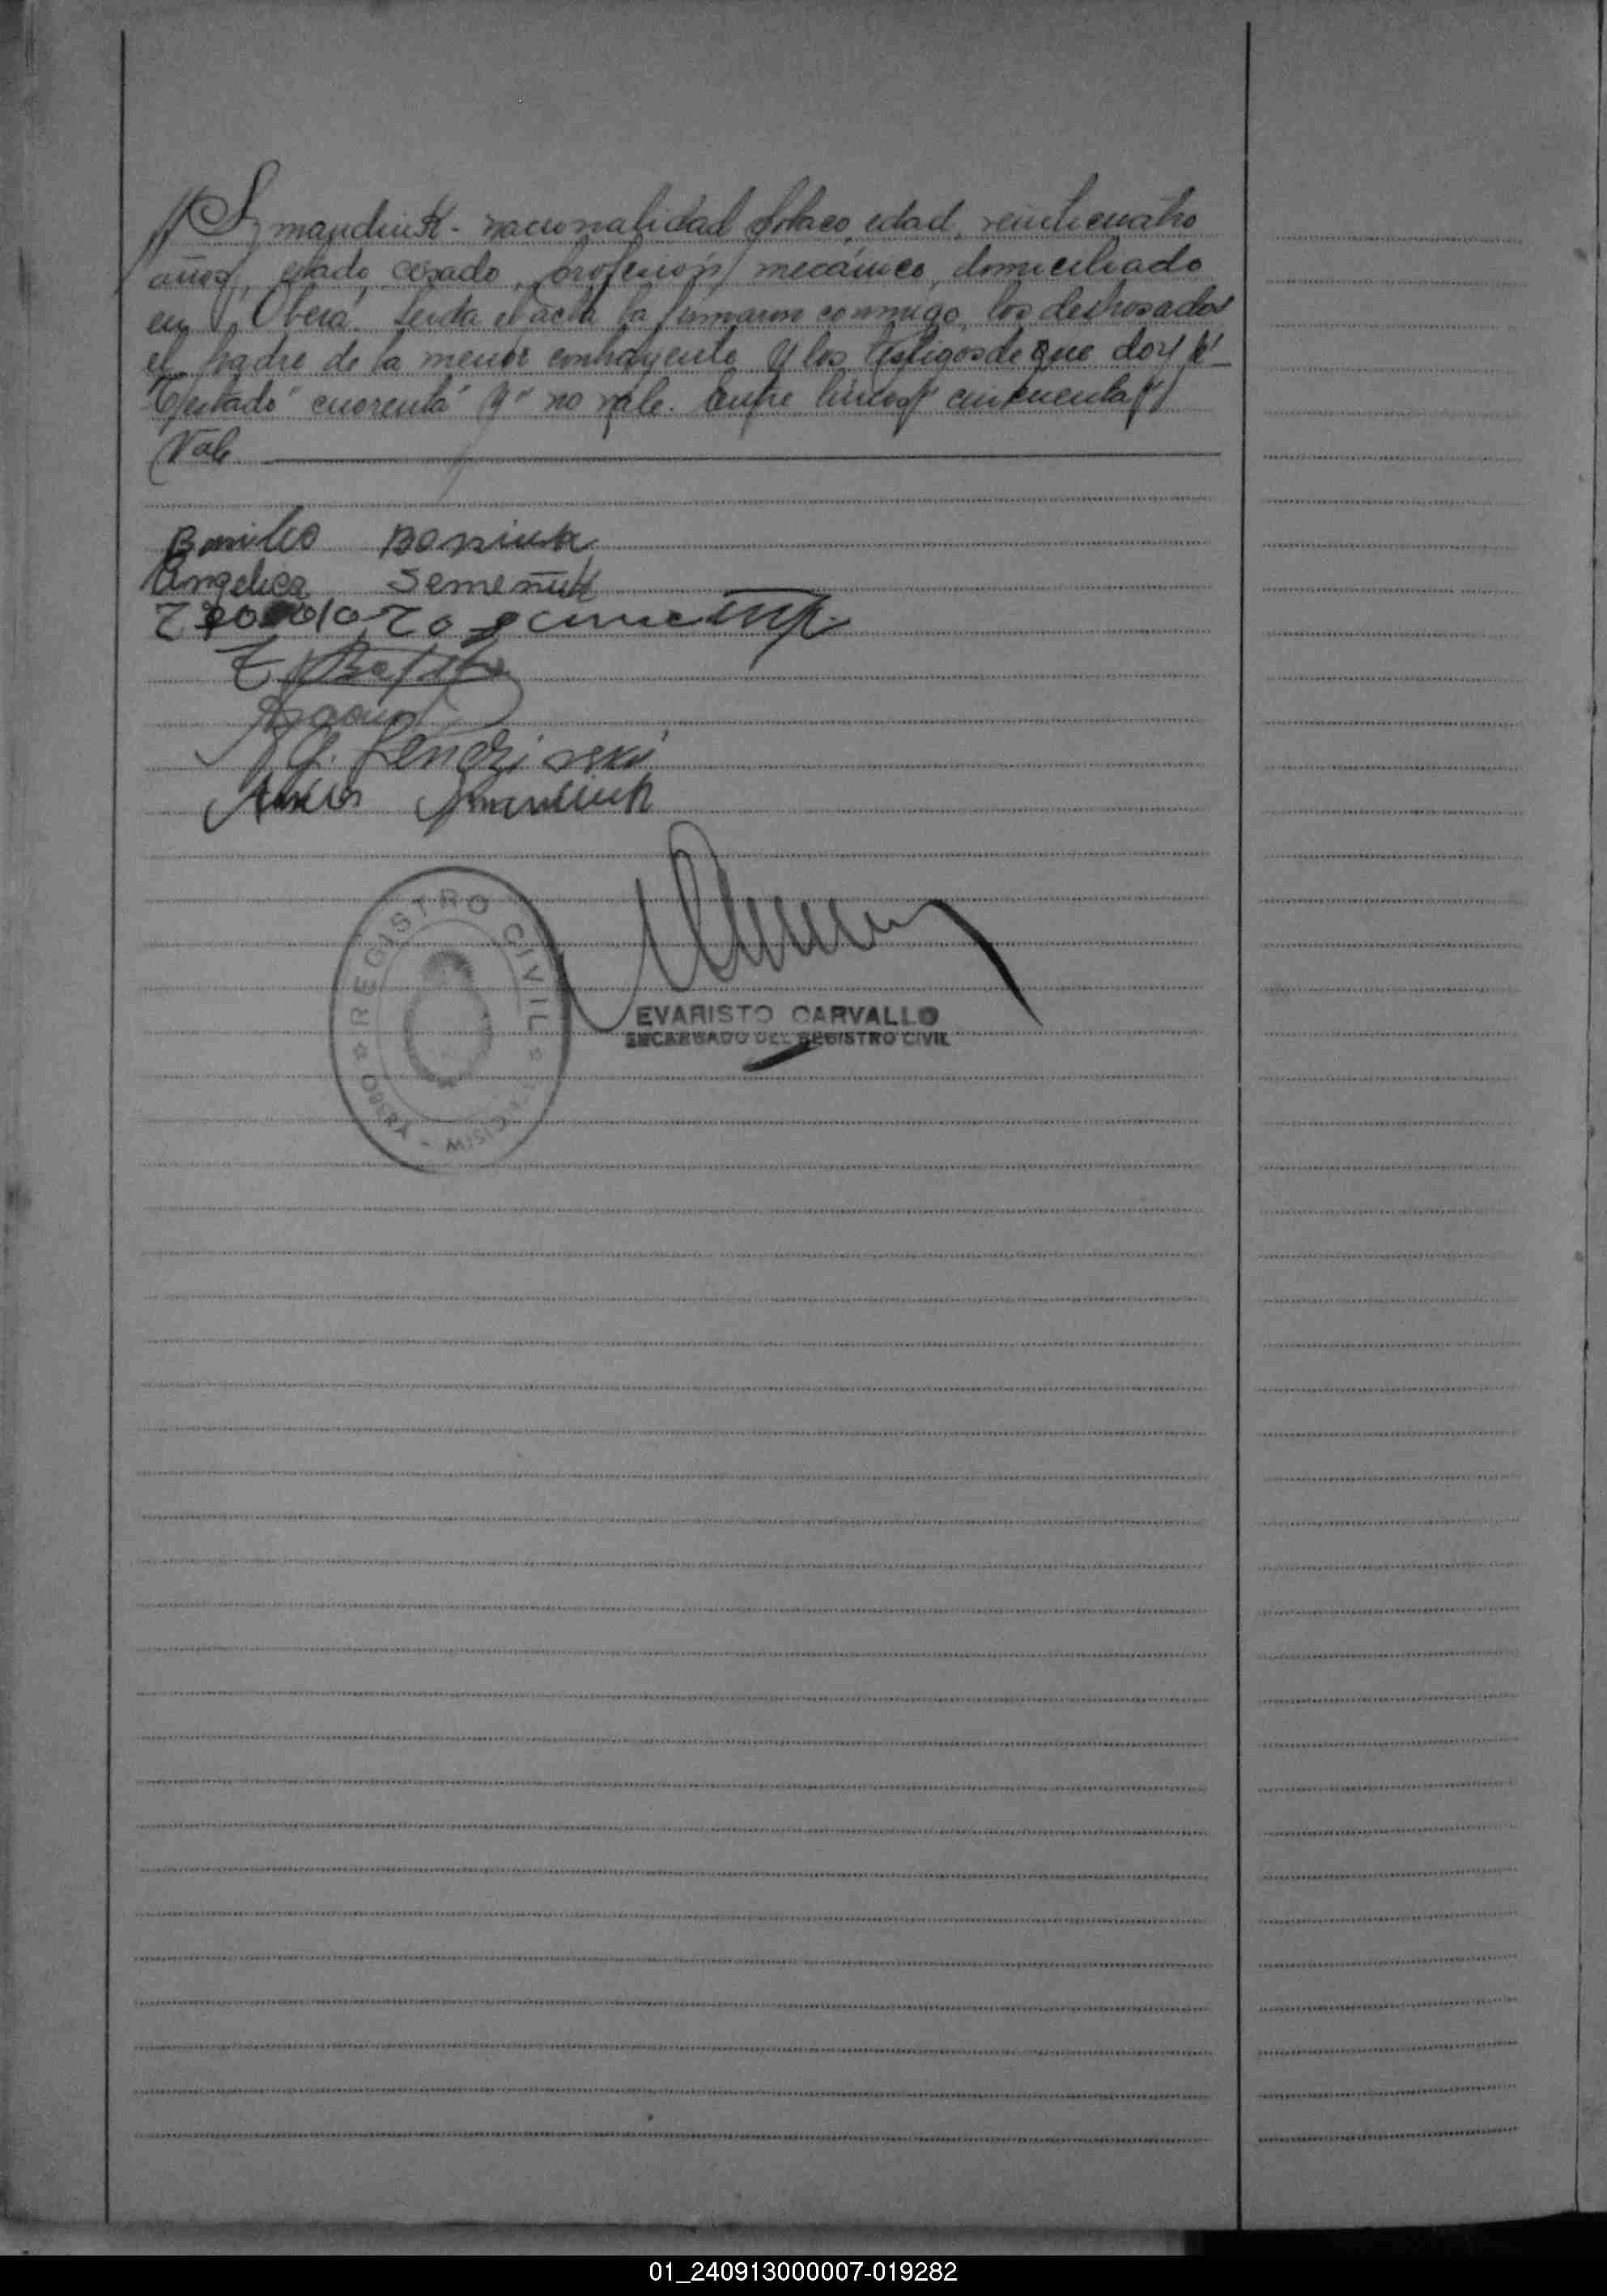 // Smandiuk - nacionalidad polaco, edad, veinticuatro
años, estado, casado, profesión mecánico, domiciliado
en Oberá. Leida el acta la firmaron conmigo, los desposados
el padre de la menor contrayente y los testigos de que doy fé
Testado "cuarenta y" no vale. Entre lineas "cincuenta"
Vale
Basilio Bosiuk
Angelica Semeñuk
Kendzierski
REGISTRO CIVIL
OBERA - MISIONES
EVARISTO CARVALLO
ENCARGADO DEL REGISTRO CIVIL
01_240913000007-019282